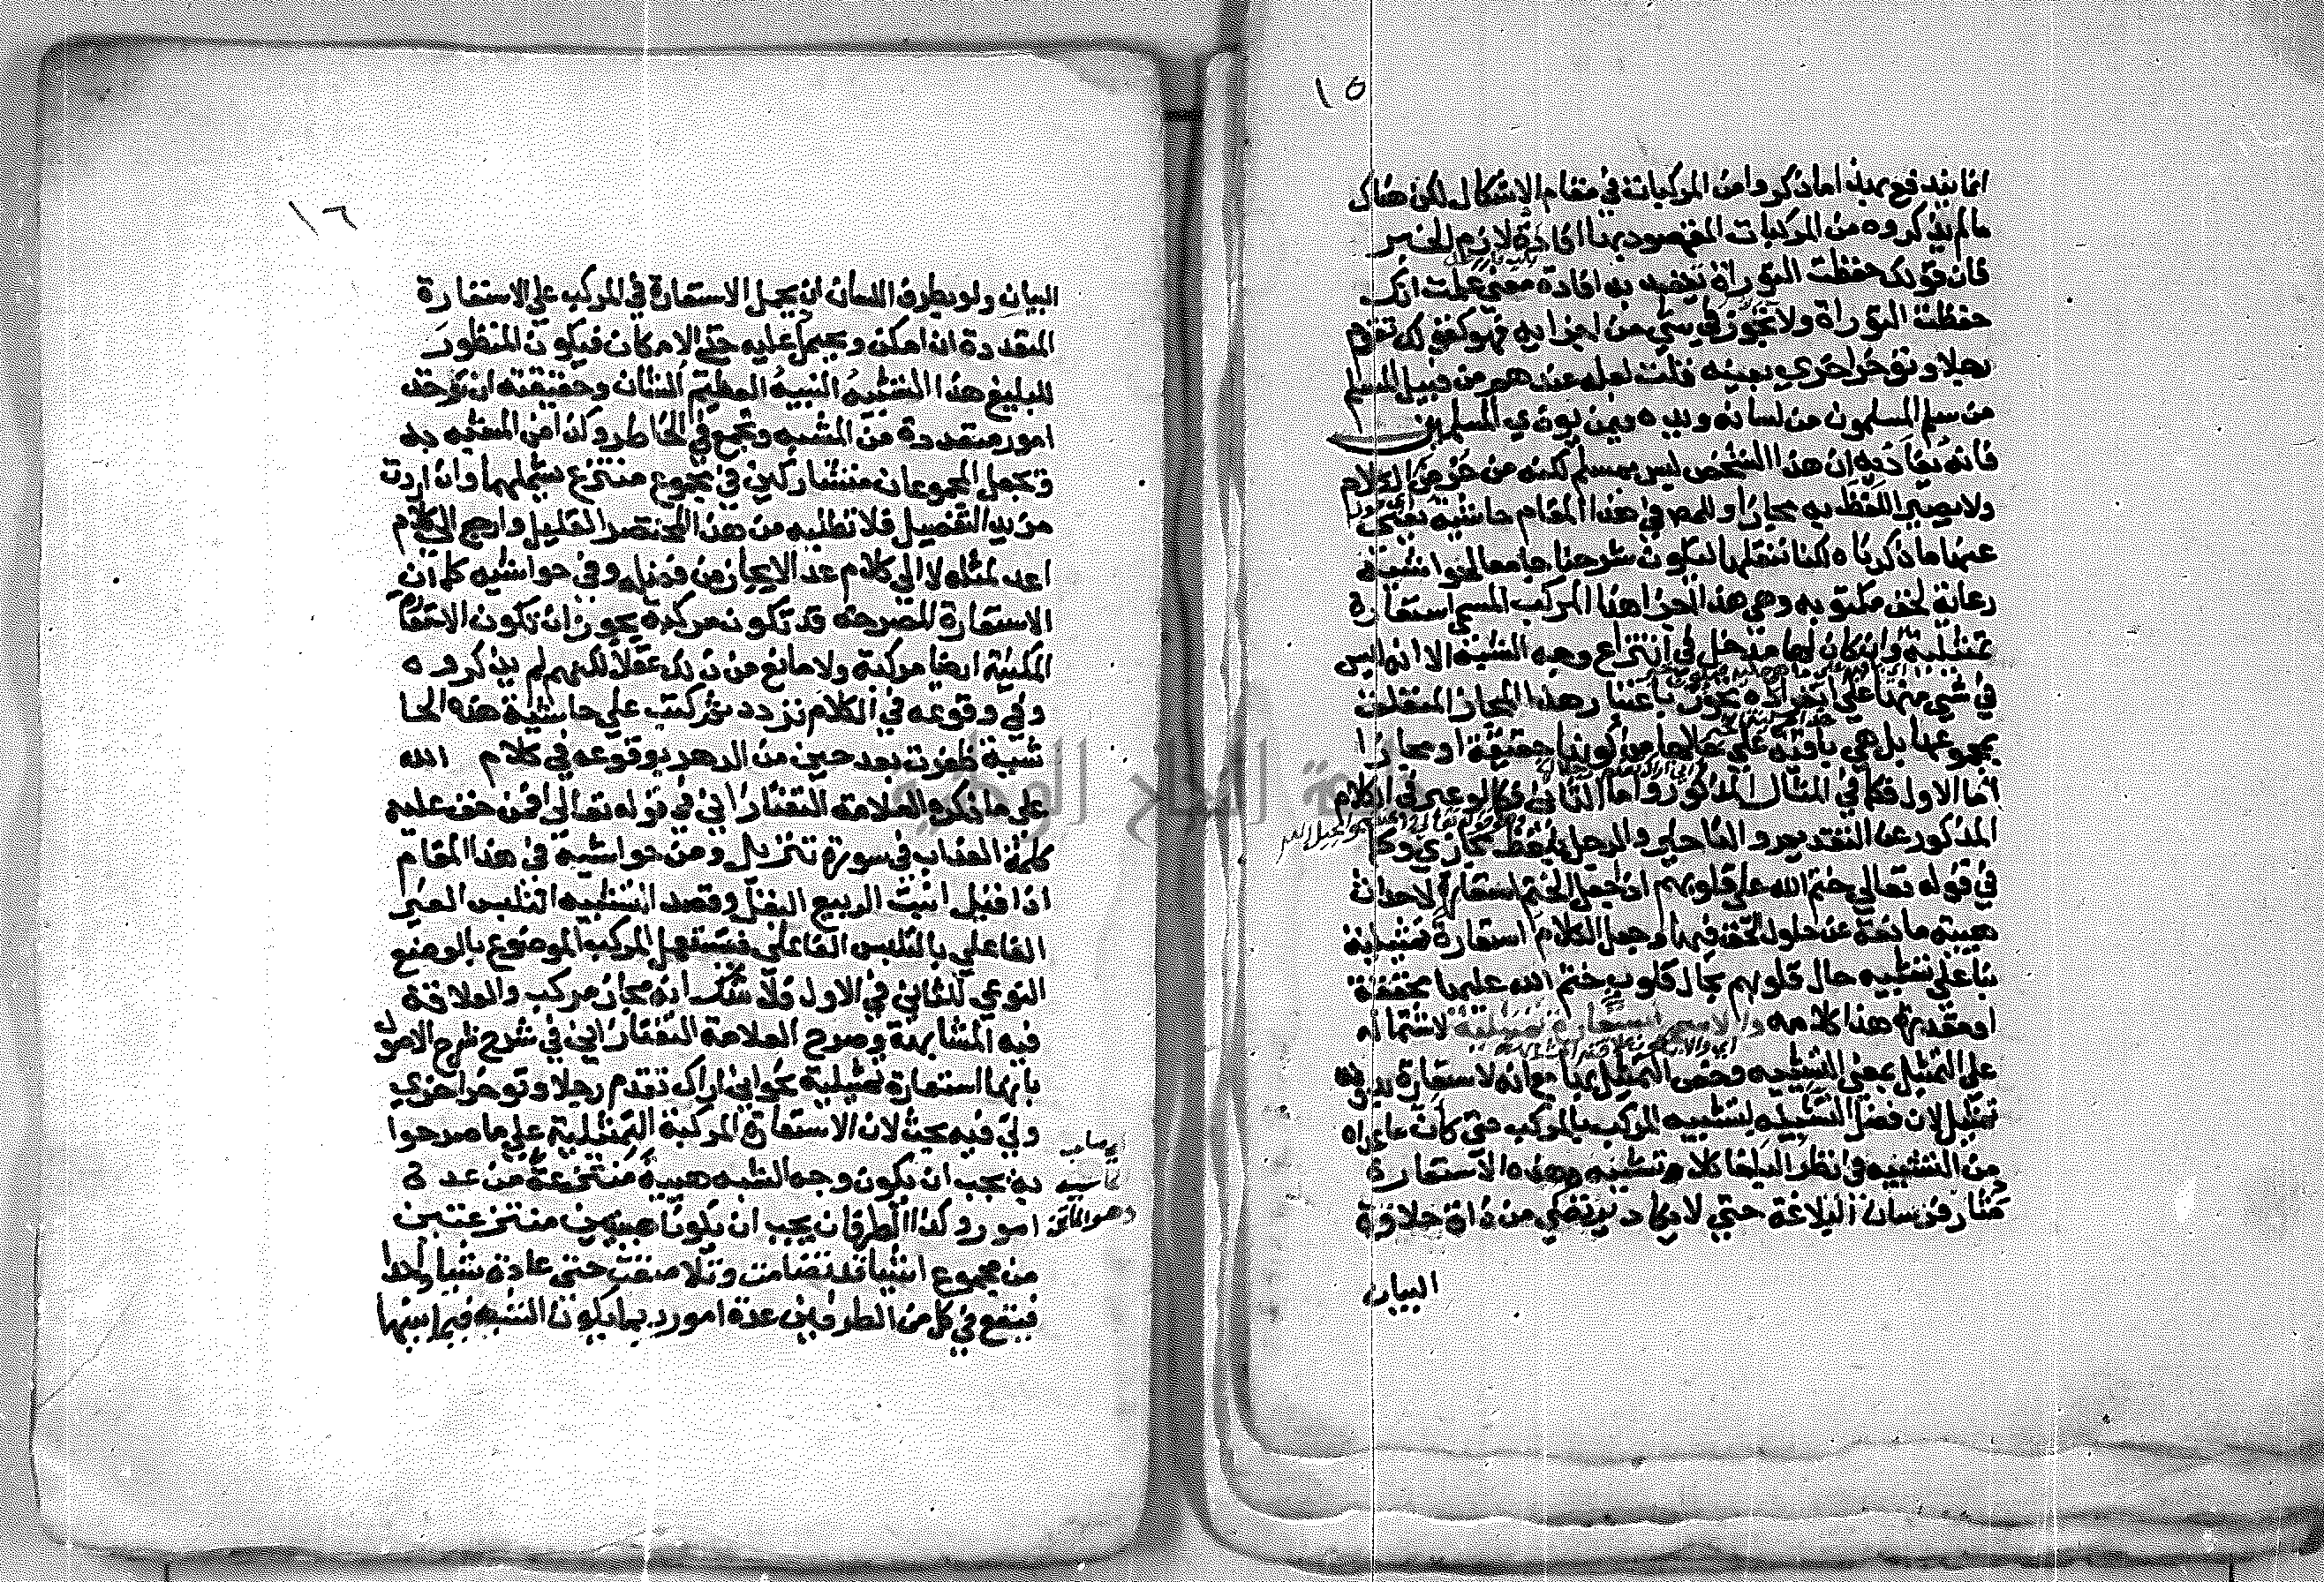 ١٥
انما يندفع بهذا ما ذكروا من المركبات في مقام الاشكال لكن هناك
ما لم يذكروه من المركبات المقصود بها افادة لازم الخبر
فان قولك حفظت التوراة تفيد به افادة معنى علمت انك
حفظت التوراة ولا تجوز في شي من اجزايه فهو كقولك تقدم
رجلا وتوخر اخري بعينه قلت لعله عندهم من قبيل المسلم
من سلم المسلمون من لسانه ويده فيمن يوذي المسلمين
فانه يفاد به ان هذا الشخص ليس بمسلم لكنه من عرض الكلام
ولا يصير اللفظ به مجازا وللمص في هذا المقام حاشية
عنها ما ذكرناه لكنا ننقلها ليكون شرحنا جامعا لحواشيه
رعاية لحق مكتوبه وهي هذا اجزا هذا المركب المسمي استعارة
تمثيلية وان كان لها مدخل في انتزاع وجه الشبه الا انه ليس
في شي منها علي انفراده تجوز باعتبار هذا المجاز المتعلق
بمجموعها بل هي باقية علي حالها من كونها حقيقة او مجازا
اما الاول فكما في المثال المذكور واما الثاني فكما لو عبر في الكلام
المذكور عن التقديم والتاخير والرجل بلفظ مجازي وكما
في قوله تعالي ختم الله علي قلوبهم ان جعل الختم استعارة لاحداث
هيية مانعة عن حلول الحق فيها وجعل الكلام استعارة تمثيلية
بنا علي تشبيه حال قلوبهم بحال قلوب ختم الله عليها محققة
او مقدرة هذا كلامه والاسم استعارة تمثيلية لاشتماله
علي التمثيل بمعني التشبيه وخص التمثيل بها مع انه لا استعارة بدونه
تمثيل لان فضل التشبيه لتشبيه المركب بالمركب حتي كان ما عداه
من التشبيه في نظر البلغا كلا تشبيه وهذه الاستعارة
مثار فرسان البلاغة حتي لا يكاد يرتضي من ذاق حلاوة
البيان
١٦
البيان ولو بطرف اللسان ان يحمل الاستعارة في المركب علي الاستعارة
المتعددة ان امكن ويحمل عليه حتي الامكان فيكون المنظور
للبليغ هذا التشبيه النبيه العظيم الشان وحقيقته ان توخذ
امور متعددة من المشبه وتجمع في الخاطر وكذا من المشبه به
وتجعل المجموعان متشاركين في مجموع منتزع يشملهما وان اردت
مزيد التفصيل فلا تطلبه من هذا المختصر القليل وارجع الي كلام
اعد لمثله لا الي كلام عد الايجاز من فضله وفي حواشيه كما ان
الاستعارة المصرحة قد تكون مركبة يجوز ان تكون الاستعارة
المكنية ايضا مركبة ولا مانع من ذلك عقلا لكنهم لم يذكروه
وفي وقوعه في الكلام تردد ثم كتب علي حاشية هذه الحا
شية ظفرت بعد حين من الدهر بوقوعه في كلام الله
علي ما ذكره العلامة التفتازاني في قوله تعالي افمن حق عليه
كلمة العذاب في سورة تنزيل ومن حواشيه في هذا المقام
اذا قيل انبت الربيع البقل وقصد تشبيه التلبس الغير
الفاعلي بالتلبس الفاعلي فيستعمل المركب الموضوع بالوضع
النوعي للثاني في الاول فلا شك انه مجاز مركب والعلاقة
فيه المشابهة وصرح العلامة التفتازاني في شرح شرح الاصول
بانها استعارة تمثيلية نحو اني اراك تقدم رجلا وتوخر اخري
ولي فيه بحث لان الاستعارة المركبة التمثيلية علي ما صرحوا
به يجب ان يكون وجه الشبه هيية منتزعة من عدة
امور وكذا الطرفان يجب ان يكونا هييتين منتزعتين
من مجموع اشيا قد تضامت وتلاصقت حتي عادة شيا واحدا
فيقع في كل من الطرفين عدة امور ربما يكون التشبيه فيما بينها